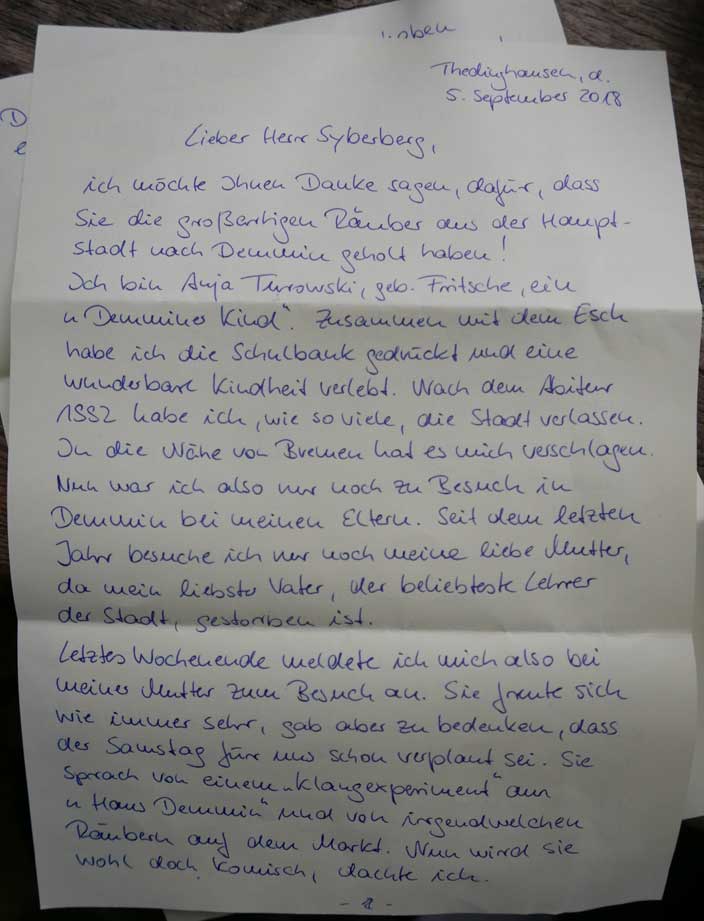 Thedinghausen, d.
5. September 2018
Lieber Herr Syberberg,
ich möchte Ihnen Danke sagen, dafür, dass
Sie die großartigen Räuber aus der Haupt-
stadt nach Demmin geholt haben!
Ich bin Anja Turowski, geb. Fritsche, ein
"Demminer Kind". Zusammen mit dem Esch
habe ich die Schulbank gedrückt und eine
wunderbare Kindheit verlebt. Nach dem Abitur
1992 habe ich, wie so viele, die Stadt verlassen.
In die Nähe von Bremen hat es mich verschlagen.
Nun war ich also nur noch zu Besuch in
Demmin bei meinen Eltern. Seit dem letzten
Jahr besuche ich nur noch meine liebe Mutter,
da mein liebster Vater, der beliebteste Lehrer
der Stadt, gestorben ist.
Letztes Wochenende meldete ich mich also bei
meiner Mutter zum Besuch an. Sie freute sich
wie immer sehr, gab aber zu bedenken, dass
der Samstag für uns schon verplant sei. Sie
sprach von einem "Klangexperiment" am
"Haus Demmin" und von irgendwelchen
Räubern auf dem Markt. Nun wird sie
wohl doch komisch, dachte ich.
- 1 -